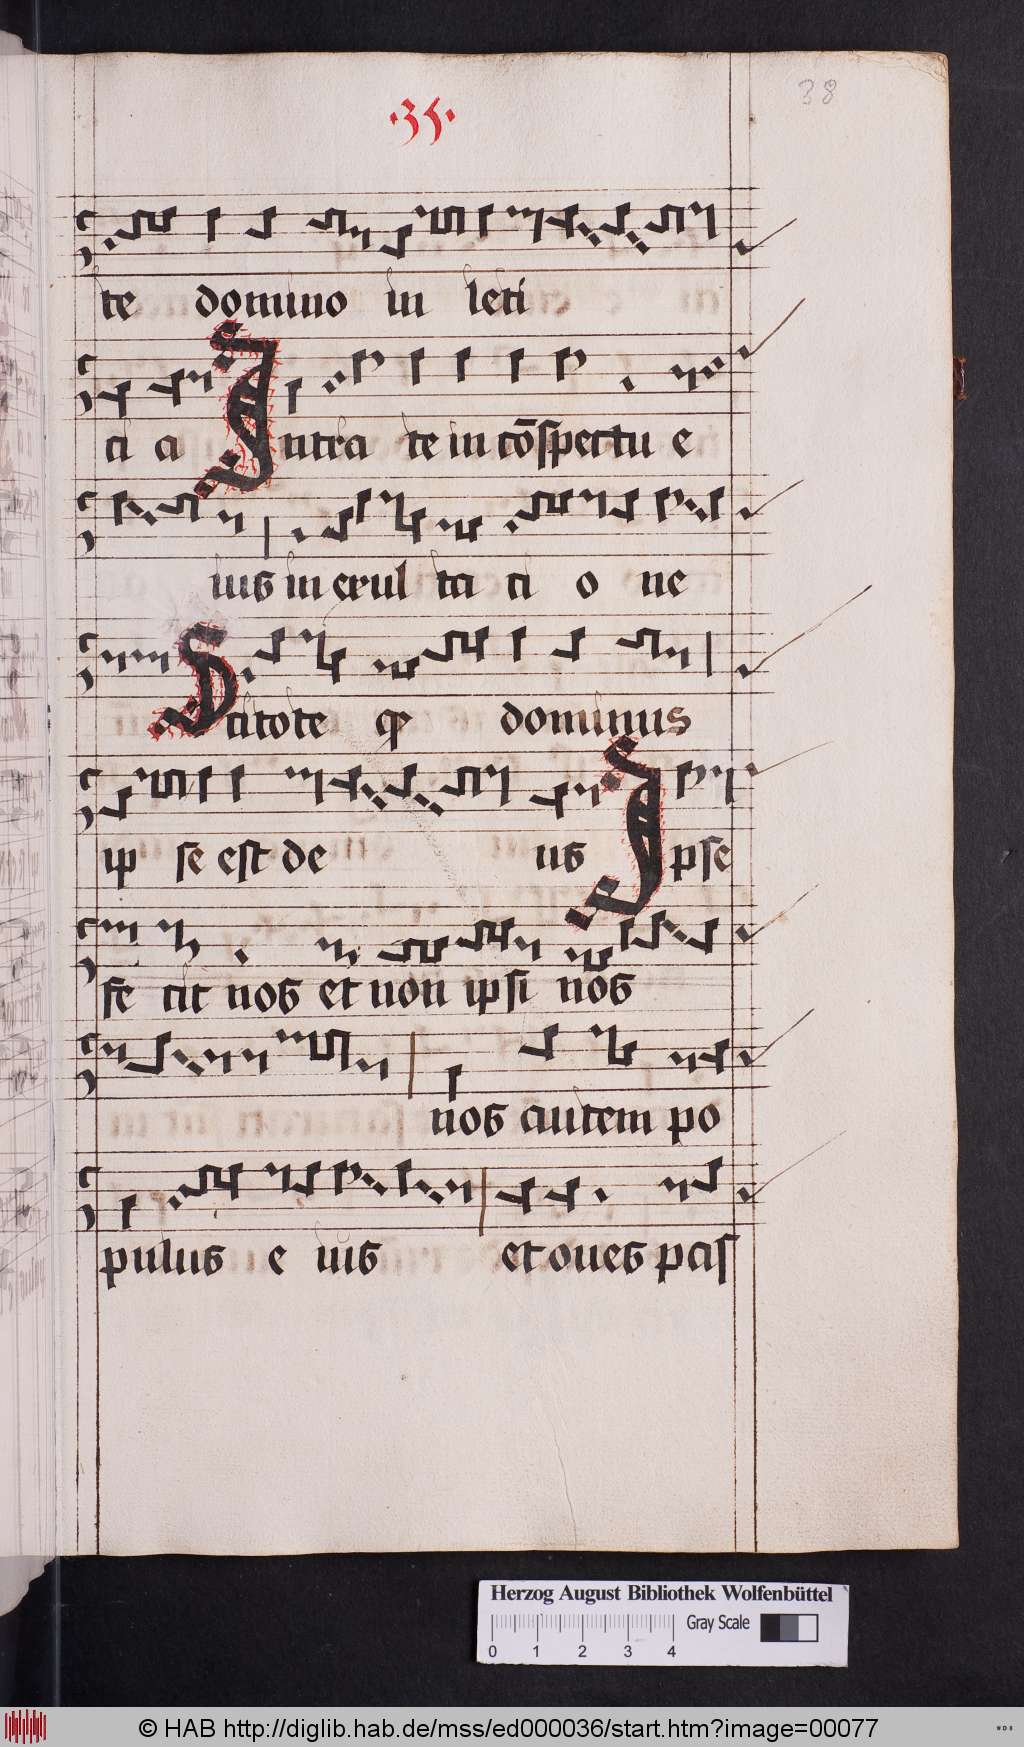 38
·35·
te domino in leti
ti a Intra te in cōspectu e
ius in exul ta ti o ne
Scitote qꝫ dominus
ip se est de us Ipse
fe cit nos et non ipsi nos
nos autem po
pulus e ius et oues pas
Herzog August Bibliothek Wolfenbüttel
Gray Scale
0 1 2 3 4
© HAB http://diglib.hab.de/mss/ed000036/start.htm?image=00077